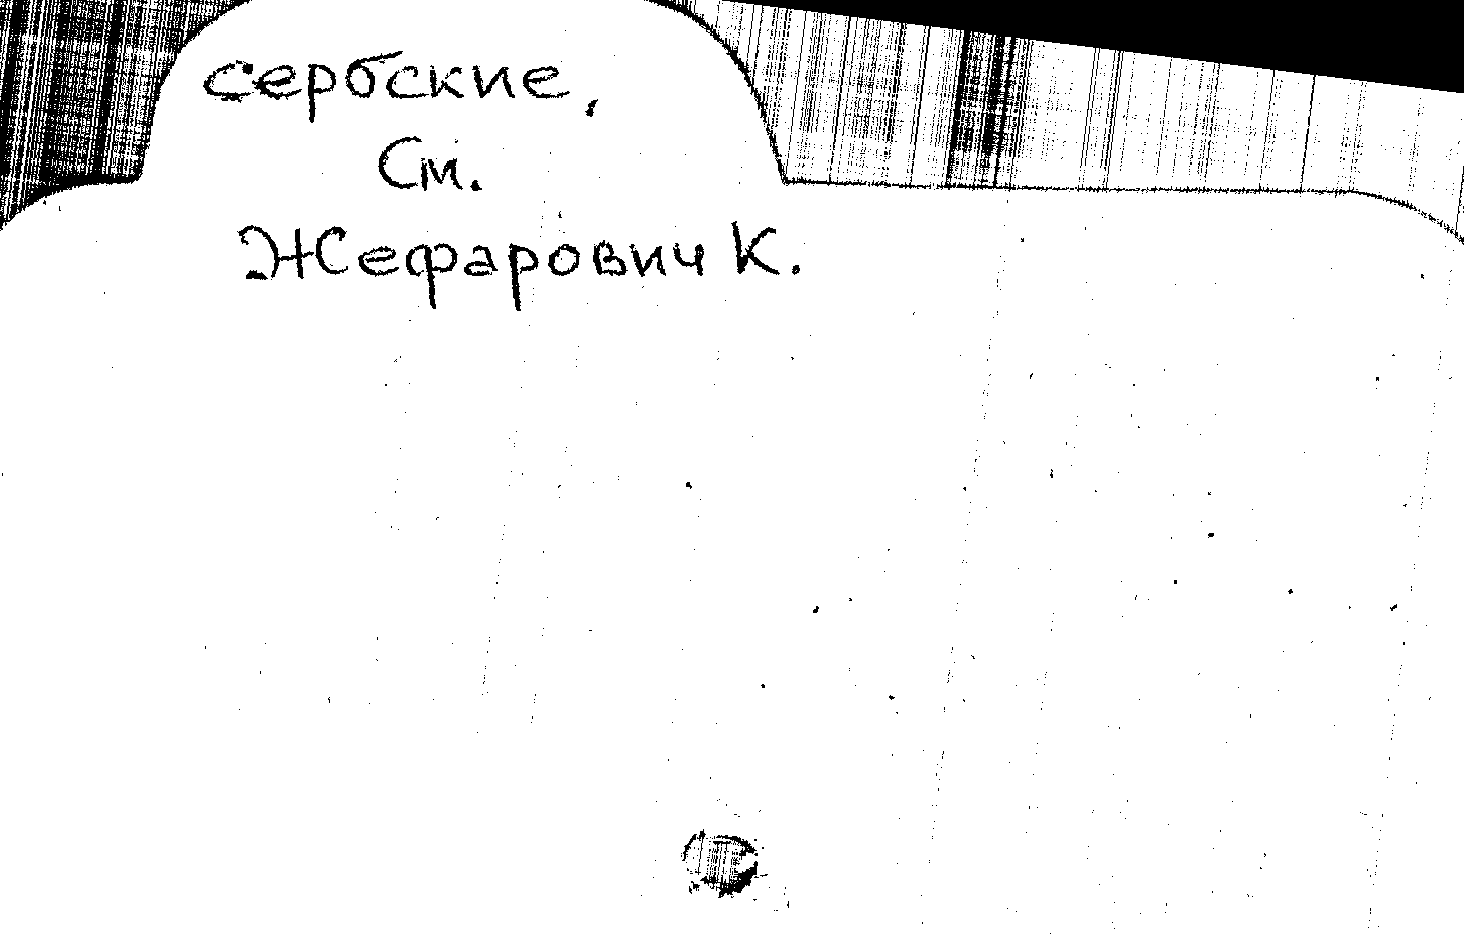 сербские,
См.
Жефарович К.